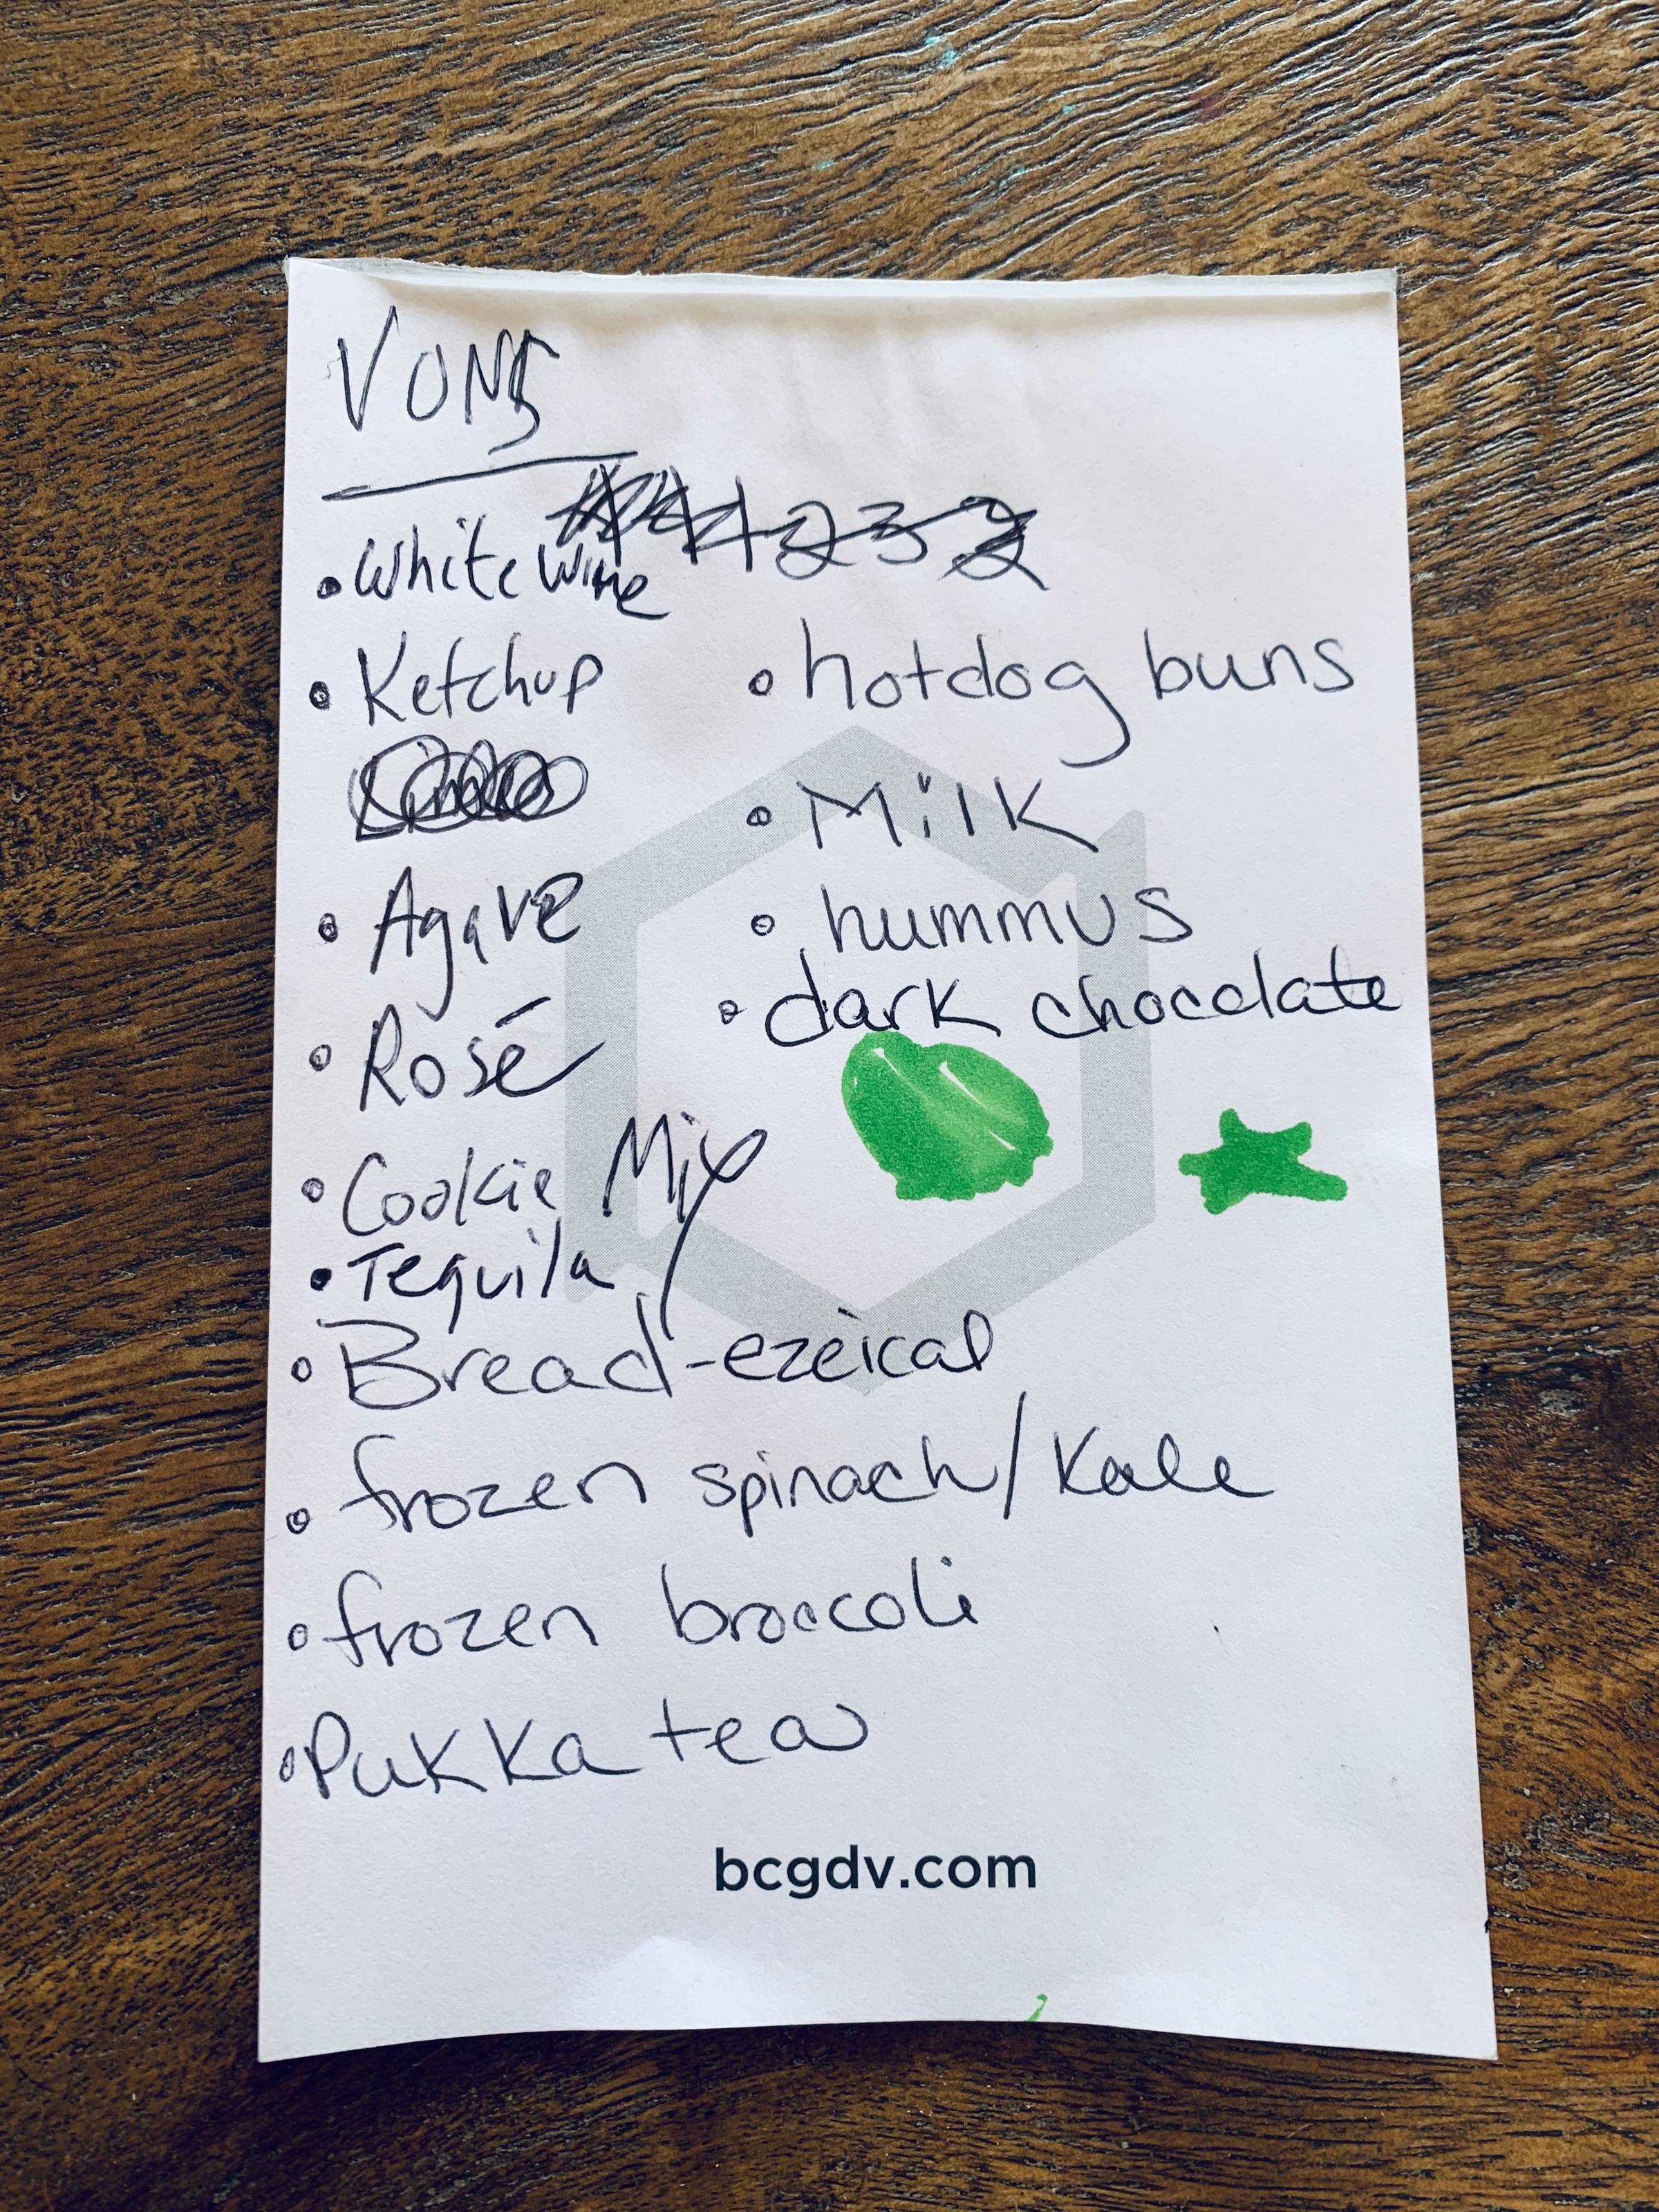 VONS
• White Wine
• Ketchup
• Agave
• Rosé
• Cookie Mix
• Tequila
• Bread-ezeical
• frozen spinach/Kale
• frozen broccoli
• Pukka tea
• hotdog buns
• Milk
• hummus
• dark chocolate
bcgdv.com